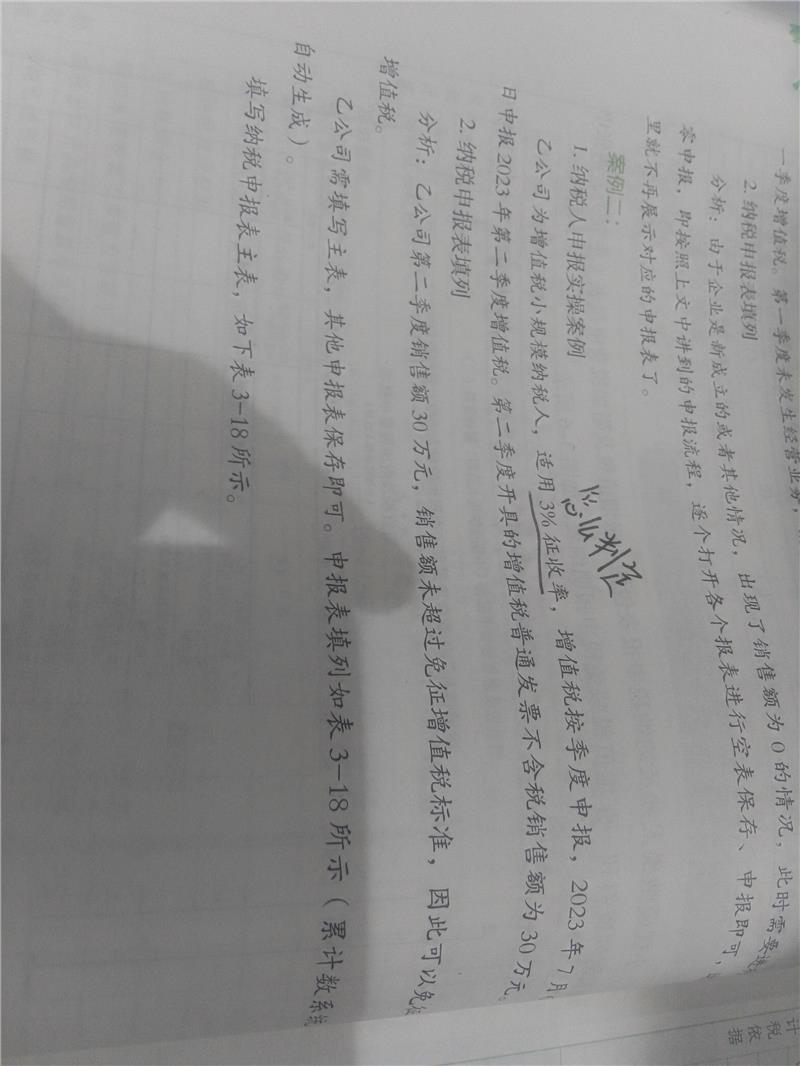 一季度增值税。第一季度未发生经营业务，
2. 纳税申报表填列
分析：由于企业是新成立的或者其他情况，出现了销售额为 0 的情况，此时需要
零申报，即按照上文中讲到的申报流程，逐个打开各个报表进行空表保存、申报即可，
里就不再展示对应的申报表了。
案例二：
1. 纳税人申报实操案例
怎么判定
乙公司为增值税小规模纳税人，适用 3% 征收率，增值税按季度申报，2023 年 7 月
日申报 2023 年第二季度增值税。第二季度开具的增值税普通发票不含税销售额为 30 万元。
2. 纳税申报表填列
分析：乙公司第二季度销售额 30 万元，销售额未超过免征增值税标准，因此可以免
增值税。
乙公司需填写主表，其他申报表保存即可。申报表填列如表 3-18 所示（累计数系
自动生成）。
填写纳税申报表主表，如下表 3-18 所示。
计税依据